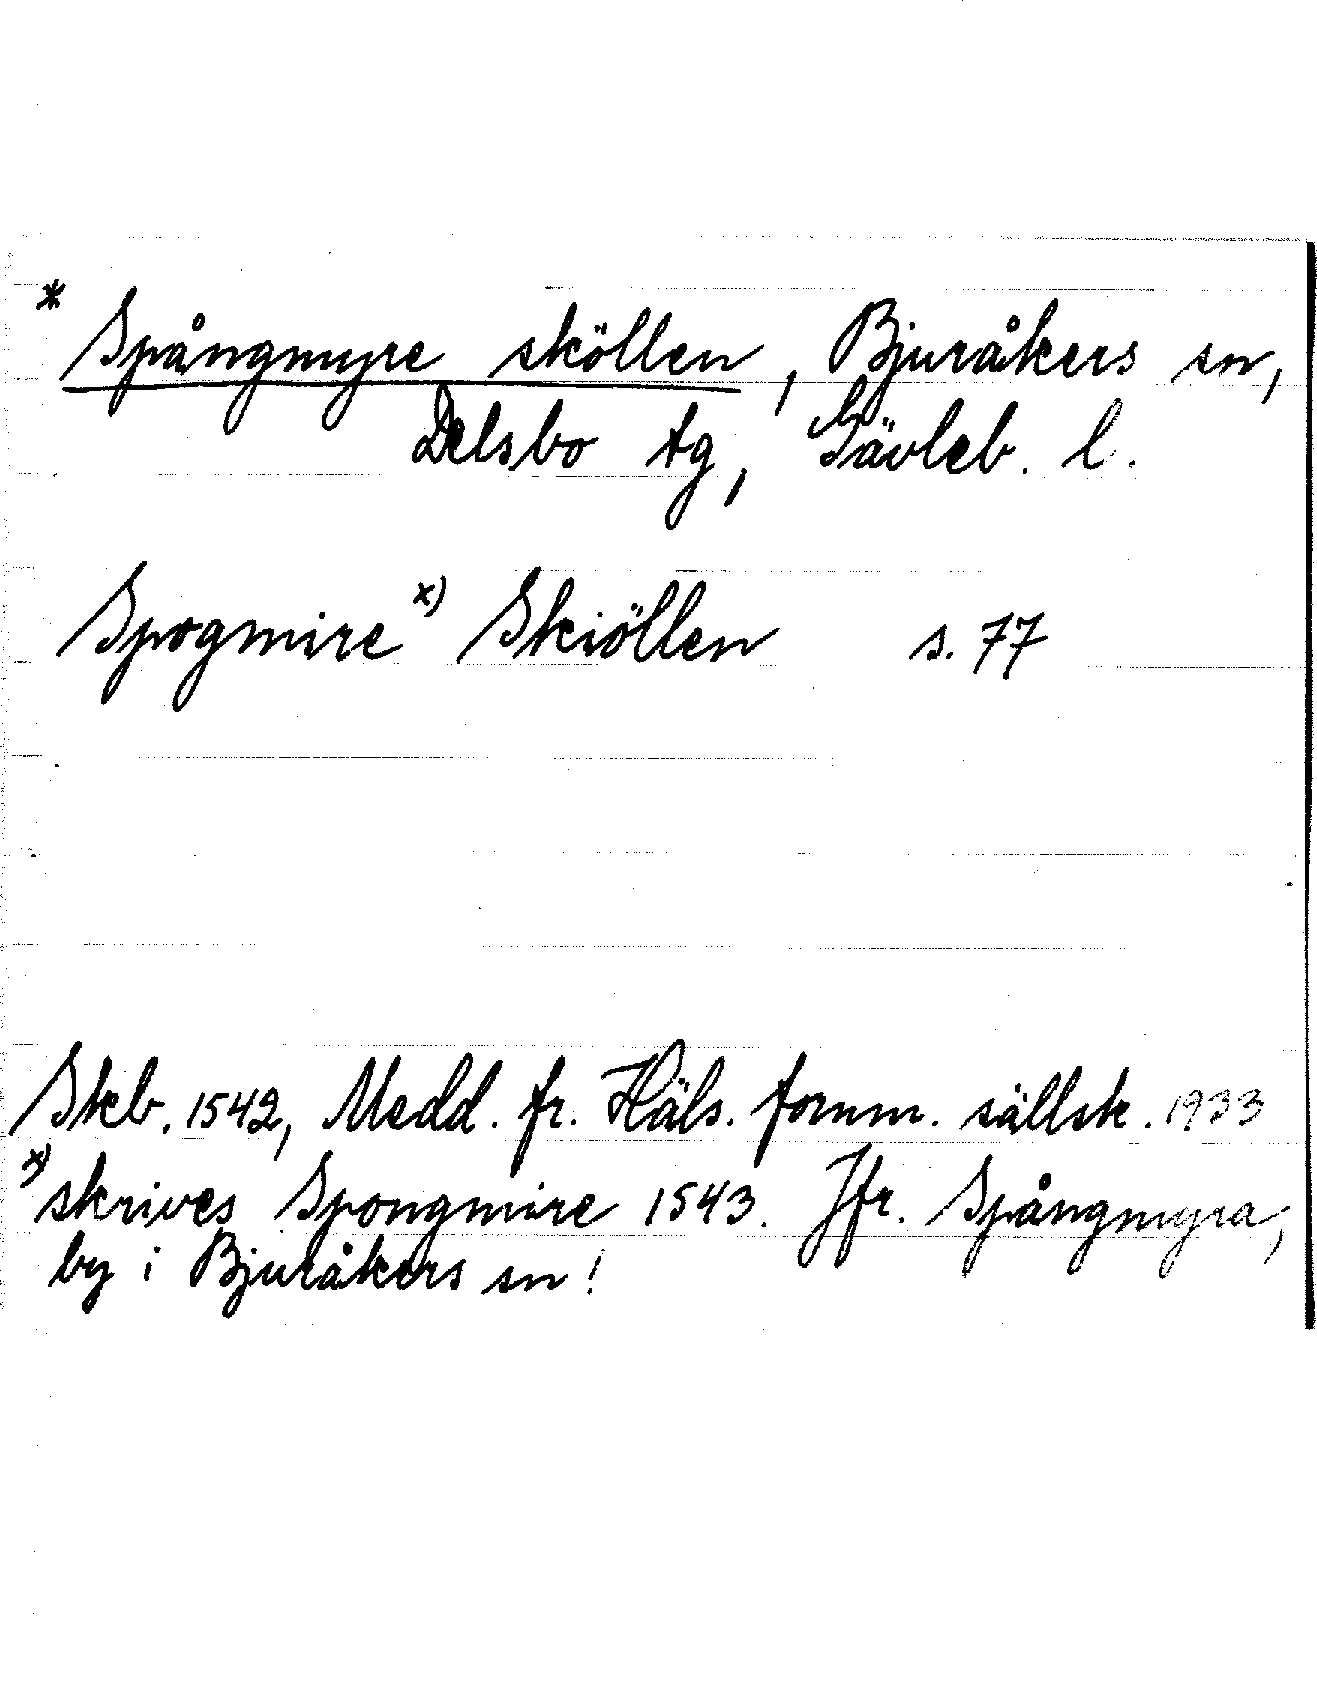 * Spångmyre sköllen, Bjuråkers sn,
Delsbo tg, Gävleb. l.
Spogmire x) Skiöllen s. 77
Skb. 1542, Medd. fr. Häls. fornm. sällsk. 1933
x) skrives Spongmire 1543. Jfr. Spångmyra,
by i Bjuråkers sn!